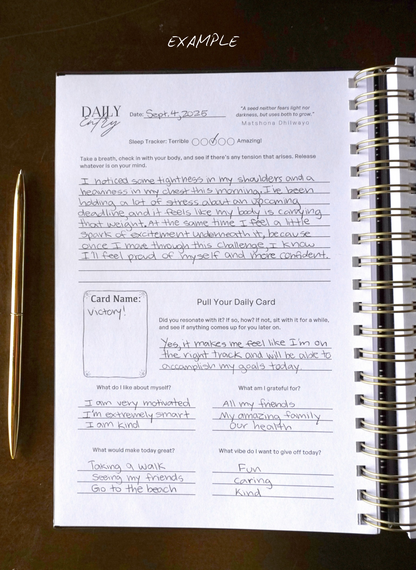 EXAMPLE
DAILY
Entry
Date: Sept. 4, 2025
"A seed neither fears light nor
darkness, but uses both to grow."
Matshona Dhliwayo
Sleep Tracker: Terrible Amazing!
Take a breath, check in with your body, and see if there's any tension that arises. Release
whatever is on your mind.
I noticed some tightness in my shoulders and a
heaviness in my chest this morning. I've been
holding a lot of stress about an upcoming
deadline, and it feels like my body is carrying
that weight. At the same time I feel a little
spark of excitement underneath it, because
once I move through this challenge, I know
I'll feel proud of myself and more confident.
Card Name:
Victory!
Pull Your Daily Card
Did you resonate with it? If so, how? If not, sit with it for a while,
and see if anything comes up for you later on.
Yes, it makes me feel like I'm on
the right track and will be able to
accomplish my goals today
What do I like about myself?
I am very motivated
I'm extremely smart
I am kind
What am I grateful for?
All my friends
My amazing family
Our health
What would make today great?
Taking a walk
Seeing my friends
Go to the beach
What vibe do I want to give off today?
Fun
Caring
Kind